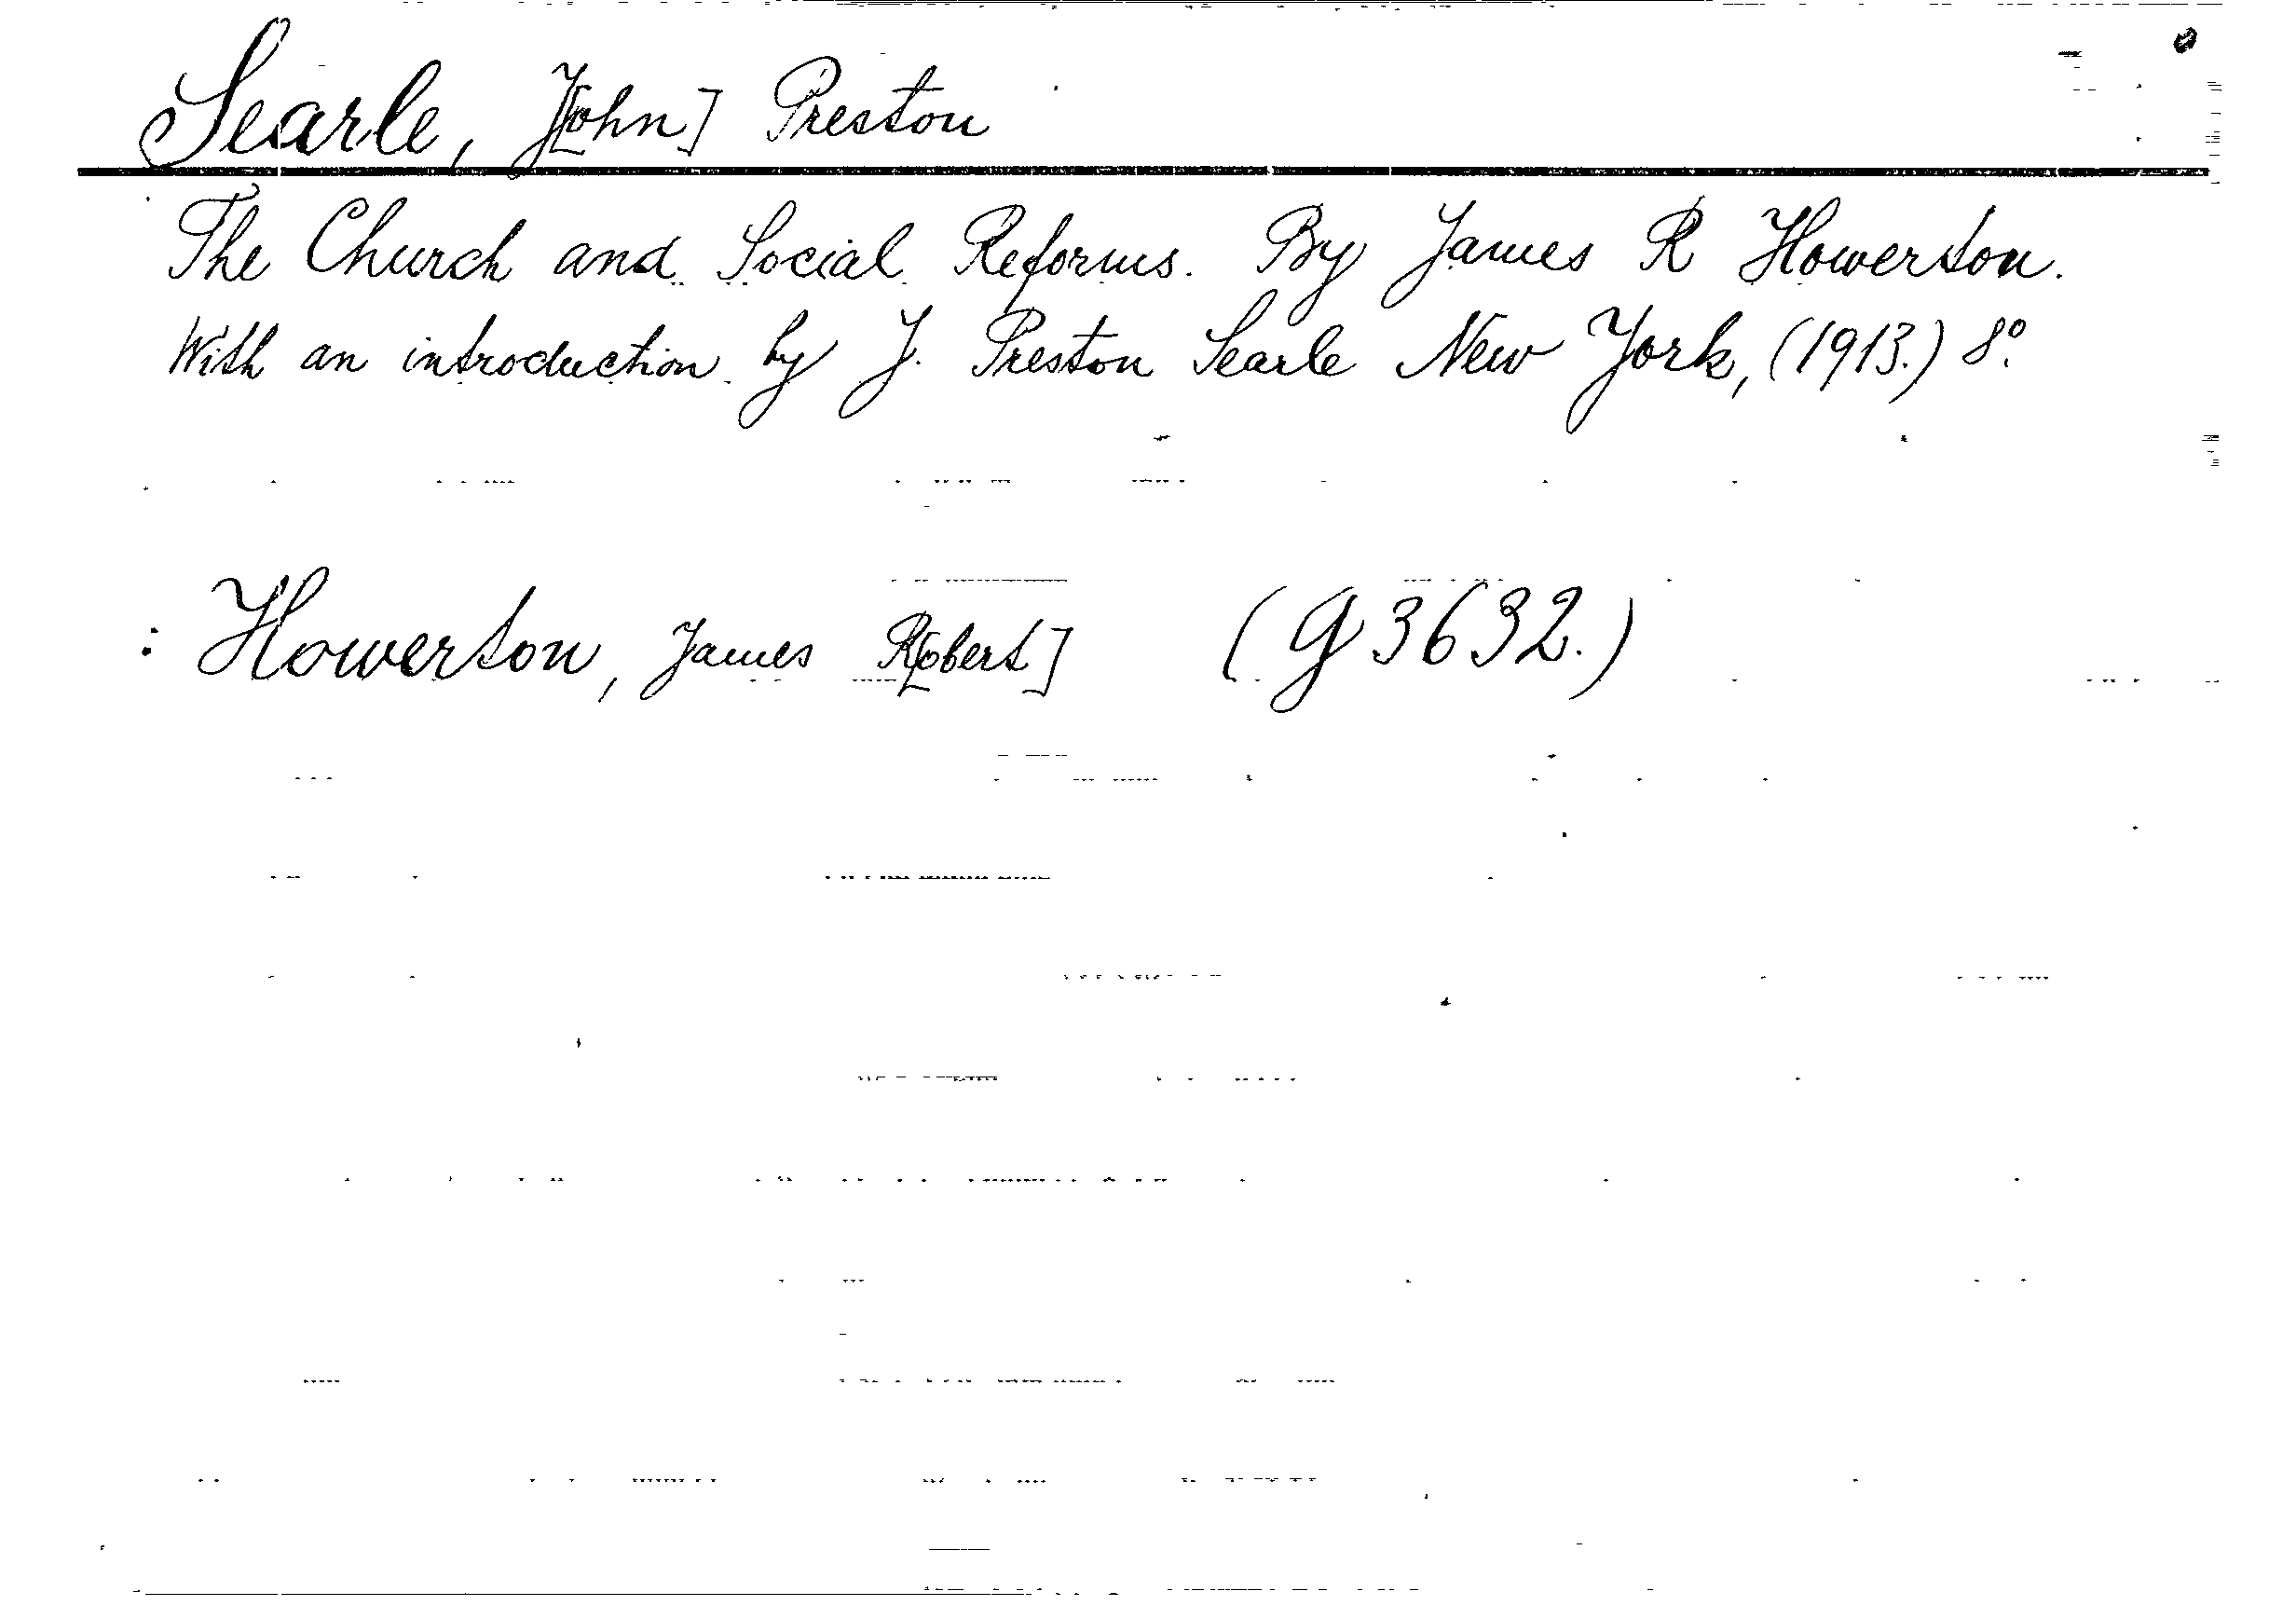 Searle, J[ohn] Preston
The Church and Social Reforms. By James R Howerton.
With an introduction by J. Preston Searle New York, (1913.) 8º.
: Howerton, James R[obert] (g 3632.)